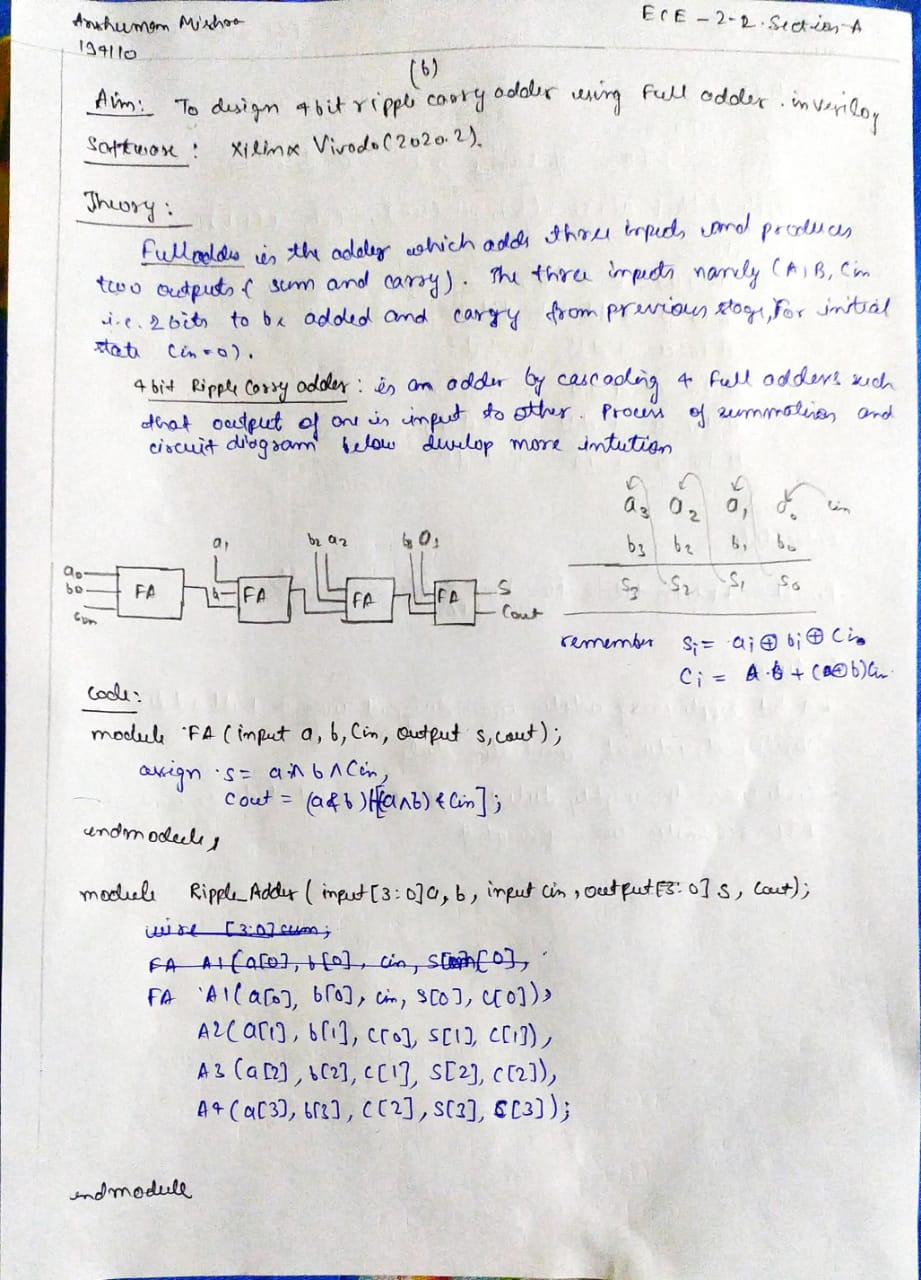 Anshuman Mishra
ECE - 2-2. Section-A
194110
(6)
Aim: To design 4 bit ripple carry adder using Full adder. in verilog
Software: Xilinx Vivado (2020.2).
Theory:
Full adder is the adder which adds three inputs and produces
two outputs ( sum and carry). The three inputs namely (A, B, Cin
i.e. 2 bits to be added and carry from previous stage, For initial
state Cin=0).
4 bit Ripple Carry adder: is an adder by cascading 4 full adders such
that output of one is input to other. Process of summation and
circuit diagram below develop more intution
a3 a2 a1 a0 cin
b3 b2 b1 b0
S3 S2 S1 S0
a1 b2 a2 b3 a3
a0
b0 FA FA FA FA S
Cin Cout
remember Si = ai ⊕ bi ⊕ Cin
Ci = A.B + (a⊕b)Cin
Code:
module FA (input a, b, Cin, output s, cout);
assign s = a ^ b ^ Cin,
Cout = (a & b) |[(a^b) & Cin];
endmodule,
module Ripple_Adder ( input [3:0]a, b, input cin, output [3:0] s, cout);
wire [3:0] sum;
FA A1(a[0], b[0], cin, s[0],
FA A1(a[0], b[0], cin, s[0], c[0]),
A2(a[1], b[1], c[0], s[1], c[1]),
A3 (a[2], b[2], c[1], s[2], c[2]),
A4 (a[3], b[3], c[2], s[3], c[3]);
endmodule